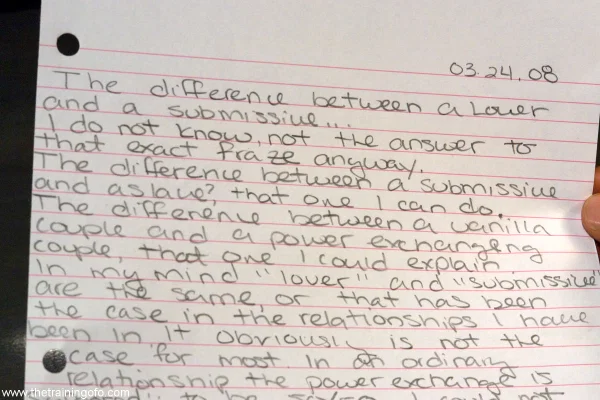 03.24.08
The difference between a lover
and a submissive...
I do not know, not the answer to
that exact fraze anyway.
The difference between a submissive
and a slave? that one I can do.
The difference between a vanilla
couple and a power exchanging
couple, that one I could explain
In my mind "lover" and "submissive"
are the same, or that has been
the case in the relationships I have
been in. it obviously is not the
case for most. In an ordinary
relationship the power exchange is
to be
www.thetrainingofo.com